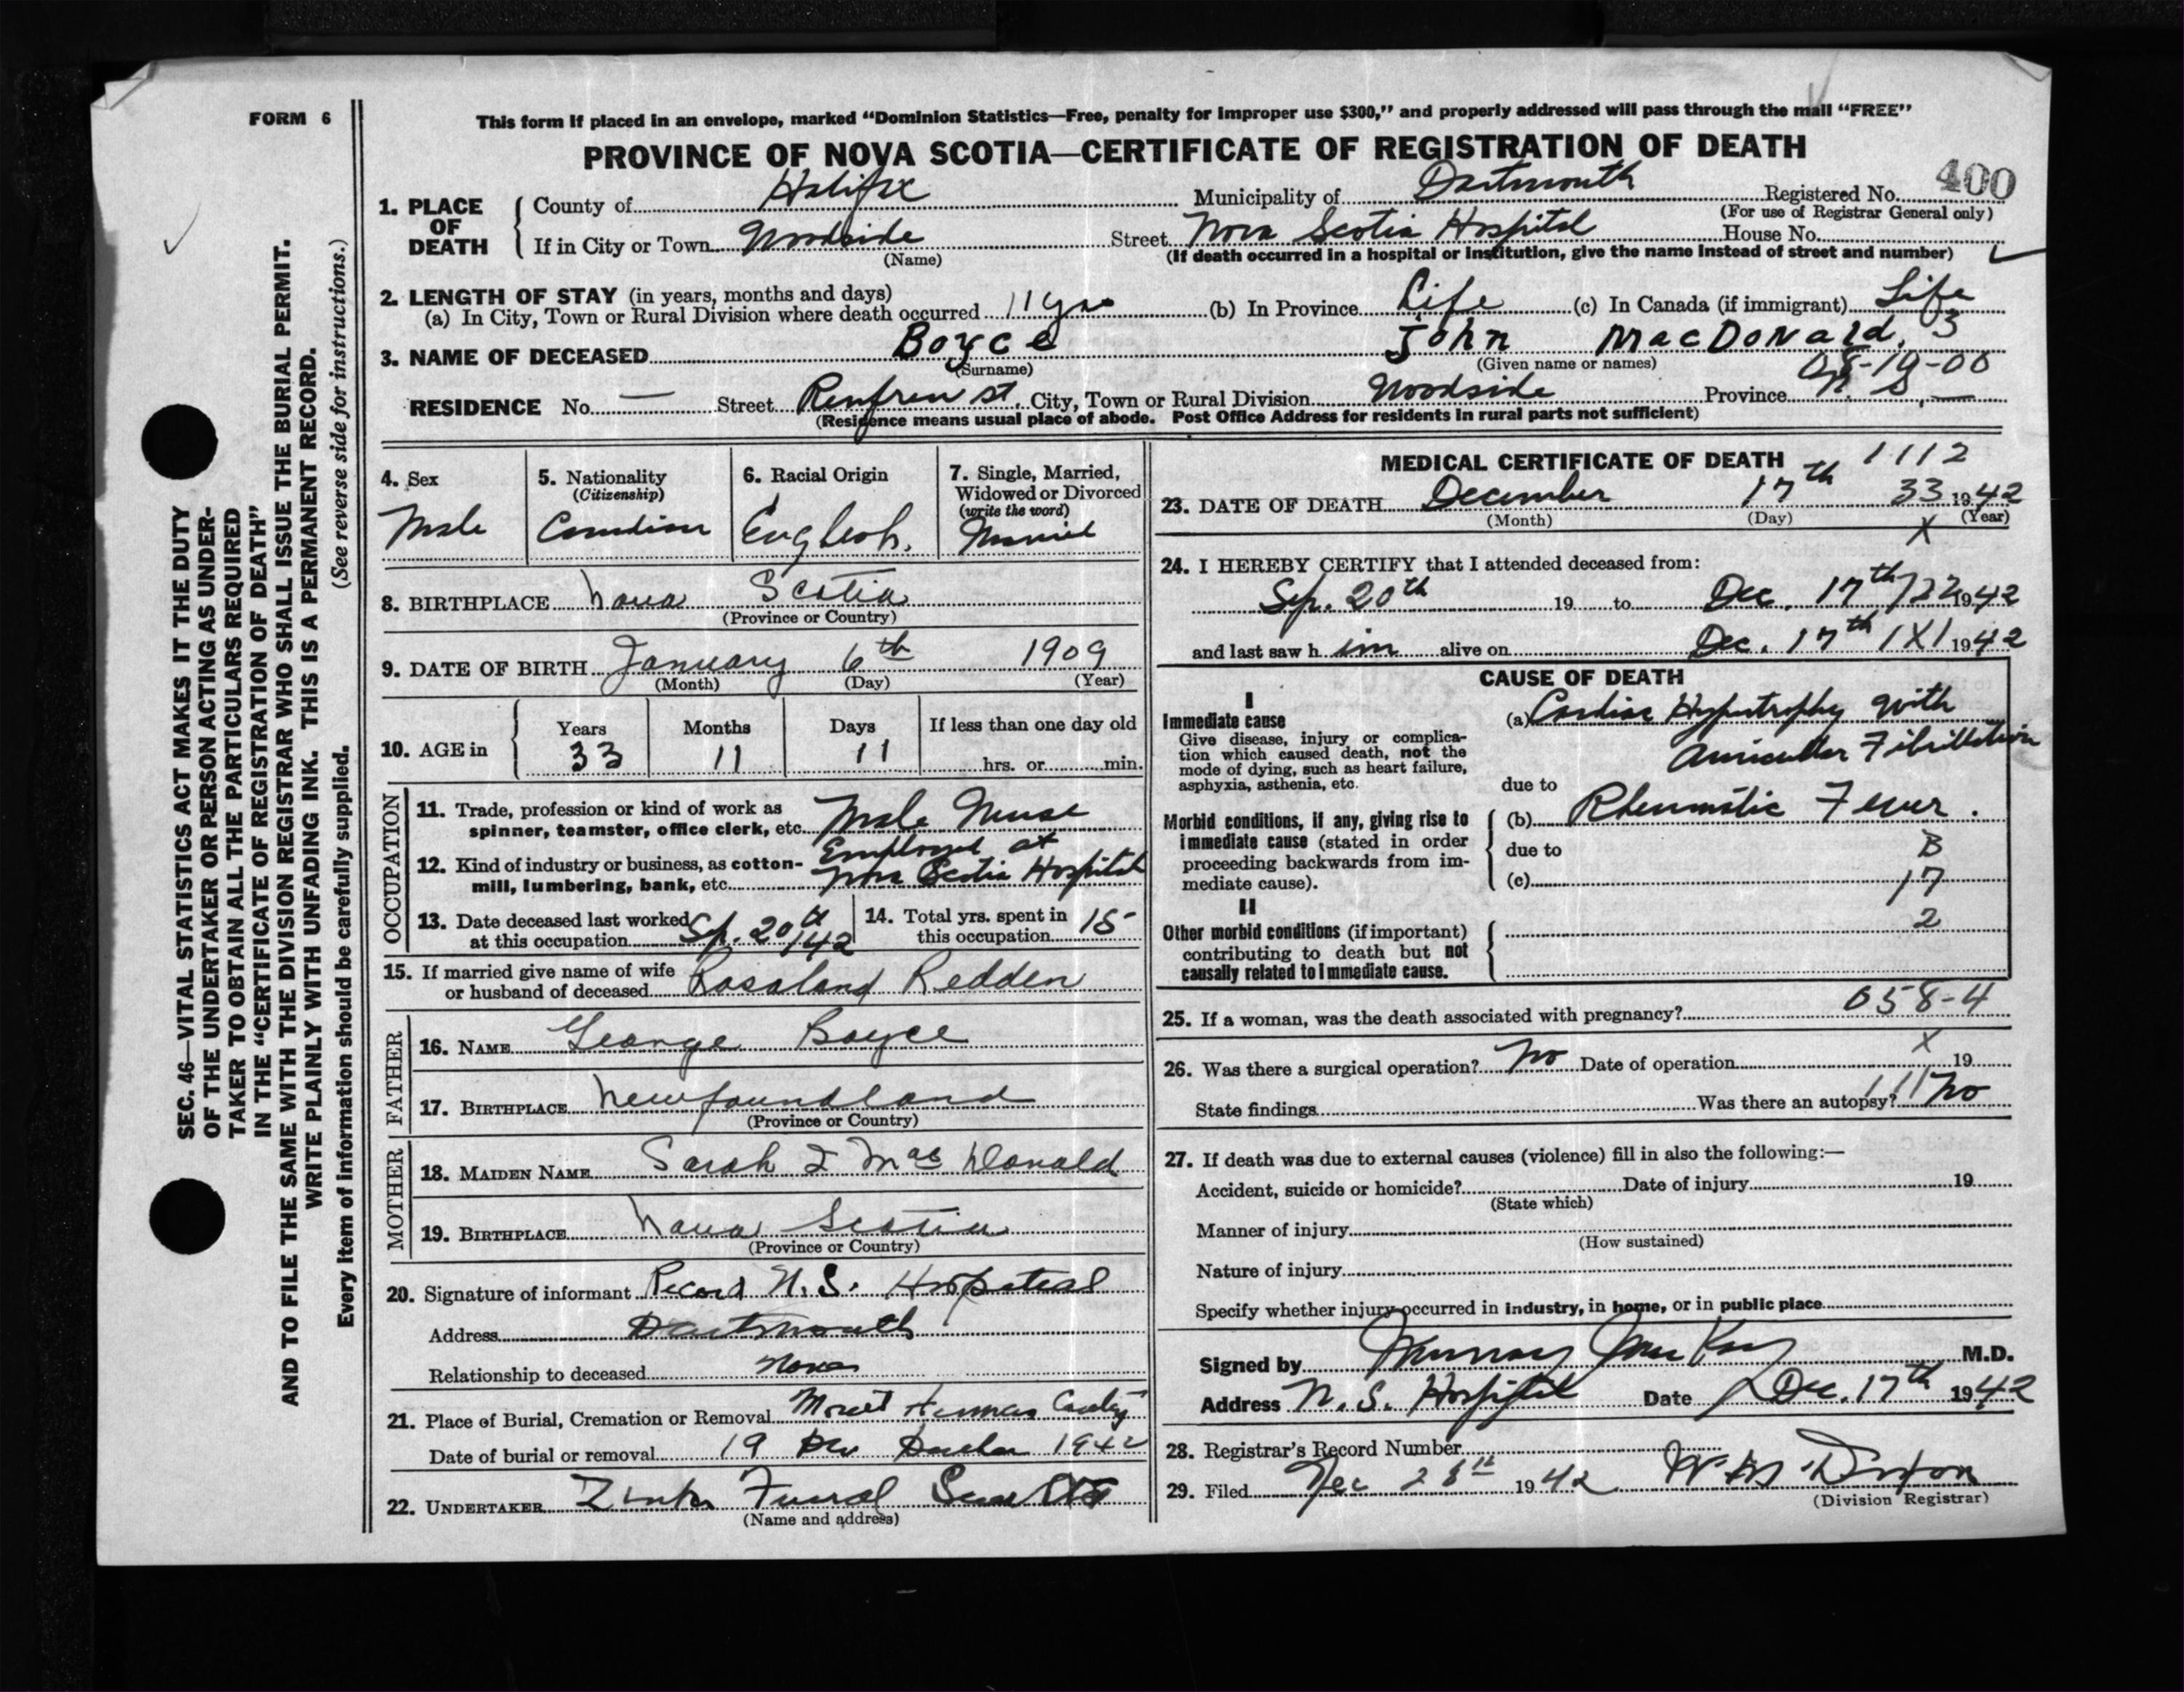 FORM 6
This form if placed in an envelope, marked "Dominion Statistics—Free, penalty for improper use $300," and properly addressed will pass through the mail "FREE"
PROVINCE OF NOVA SCOTIA—CERTIFICATE OF REGISTRATION OF DEATH
400
1. PLACE OF DEATH { County of Halifax Municipality of Dartmouth Registered No.
(For use of Registrar General only)
If in City or Town Woodside Street Nova Scotia Hospital House No.
(Name) (If death occurred in a hospital or institution, give the name instead of street and number)
2. LENGTH OF STAY (in years, months and days)
(a) In City, Town or Rural Division where death occurred 11 yrs (b) In Province Life (c) In Canada (if immigrant) Life
3. NAME OF DECEASED Boyce John MacDonald. 3
(Surname) (Given name or names) 08-19-00
RESIDENCE No. — Street Renfrew st, City, Town or Rural Division Woodside Province N. S.
(Residence means usual place of abode. Post Office Address for residents in rural parts not sufficient)
4. Sex
Male
5. Nationality
(Citizenship)
Canadian
6. Racial Origin
English.
7. Single, Married,
Widowed or Divorced
(write the word)
Married
8. BIRTHPLACE Nova Scotia
(Province or Country)
9. DATE OF BIRTH January 6th 1909
(Month) (Day) (Year)
10. AGE in { Years Months Days If less than one day old
33 11 11 hrs. or min.
OCCUPATION
11. Trade, profession or kind of work as
spinner, teamster, office clerk, etc. Male Nurse
12. Kind of industry or business, as cotton-
mill, lumbering, bank, etc. Employed at
Nova Scotia Hospital
13. Date deceased last worked
at this occupation Sep. 20th/42
14. Total yrs. spent in
this occupation 15
15. If married give name of wife
or husband of deceased Rosaland Redden
FATHER
16. NAME George Boyce
17. BIRTHPLACE Newfoundland
(Province or Country)
MOTHER
18. MAIDEN NAME Sarah I MacDonald
19. BIRTHPLACE Nova Scotia
(Province or Country)
20. Signature of informant Record N. S. Hospital
Address Dartmouth
Relationship to deceased None
21. Place of Burial, Cremation or Removal Mount Hermon
Date of burial or removal 19 1942
22. UNDERTAKER Funeral
(Name and address)
MEDICAL CERTIFICATE OF DEATH
1112
23. DATE OF DEATH December 17th 33 1942
(Month) (Day) (Year)
X
24. I HEREBY CERTIFY that I attended deceased from:
Sep. 20th 19 to Dec. 17th 1942
and last saw h im alive on Dec. 17th 1X1 1942
CAUSE OF DEATH
I
Immediate cause
Give disease, injury or complica-
tion which caused death, not the
mode of dying, such as heart failure,
asphyxia, asthenia, etc.
(a) Cardiac Hypertrophy with
Auricular Fibrillation
due to
Morbid conditions, if any, giving rise to
immediate cause (stated in order
proceeding backwards from im-
mediate cause).
(b) Rheumatic Fever.
due to B
(c) 17
II
2
Other morbid conditions (if important)
contributing to death but not
causally related to immediate cause.
058-4
25. If a woman, was the death associated with pregnancy?
X
26. Was there a surgical operation? No Date of operation 19
State findings Was there an autopsy? 111 No
27. If death was due to external causes (violence) fill in also the following:—
Accident, suicide or homicide? Date of injury 19
(State which)
Manner of injury
(How sustained)
Nature of injury
Specify whether injury occurred in industry, in home, or in public place
Signed by Murray MacKay M.D.
Address N. S. Hospital Date Dec. 17th 1942
28. Registrar's Record Number
29. Filed Dec 28th 1942
(Division Registrar)
SEC. 46—VITAL STATISTICS ACT MAKES IT THE DUTY
OF THE UNDERTAKER OR PERSON ACTING AS UNDER-
TAKER TO OBTAIN ALL THE PARTICULARS REQUIRED
IN THE "CERTIFICATE OF REGISTRATION OF DEATH"
AND TO FILE THE SAME WITH THE DIVISION REGISTRAR WHO SHALL ISSUE THE BURIAL PERMIT.
WRITE PLAINLY WITH UNFADING INK. THIS IS A PERMANENT RECORD.
Every item of information should be carefully supplied. (See reverse side for instructions.)